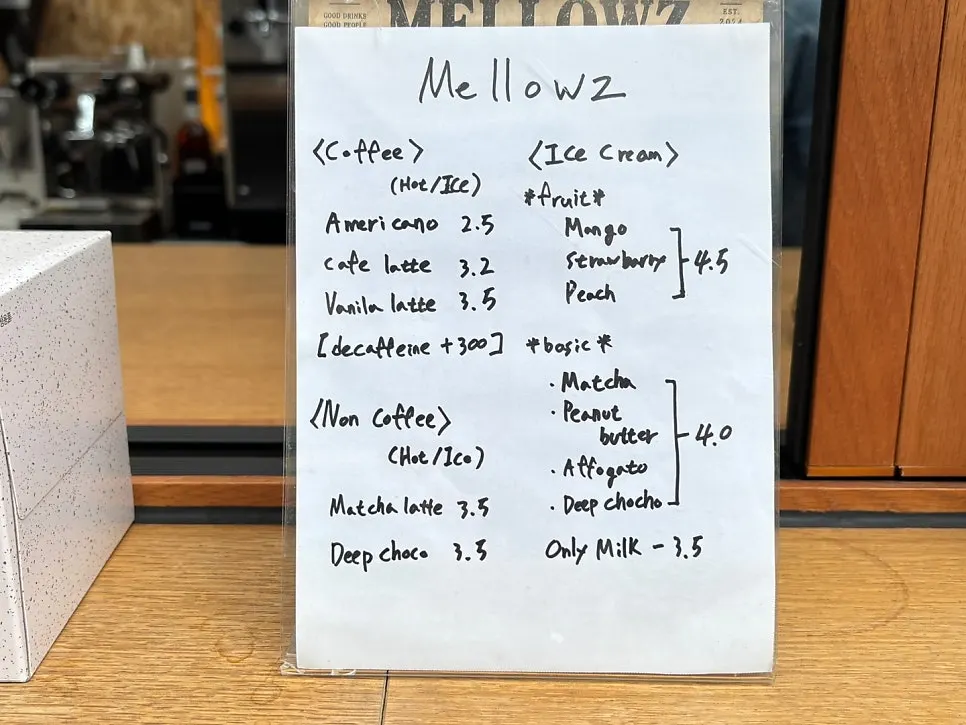 GOOD DRINKS
GOOD PEOPLE
MELLOWZ
EST.
2024
Mellowz
<Coffee>
(Hot/Ice)
Americano 2.5
cafe latte 3.2
Vanila latte 3.5
[decaffeine +300]
<Non Coffee>
(Hot/Ice)
Matcha latte 3.5
Deep choco 3.5
<Ice Cream>
*fruit*
Mango
strawbarry
Peach
4.5
*basic*
· Matcha
· Peanut
butter
· Affogato
· Deep chocho
4.0
Only Milk - 3.5